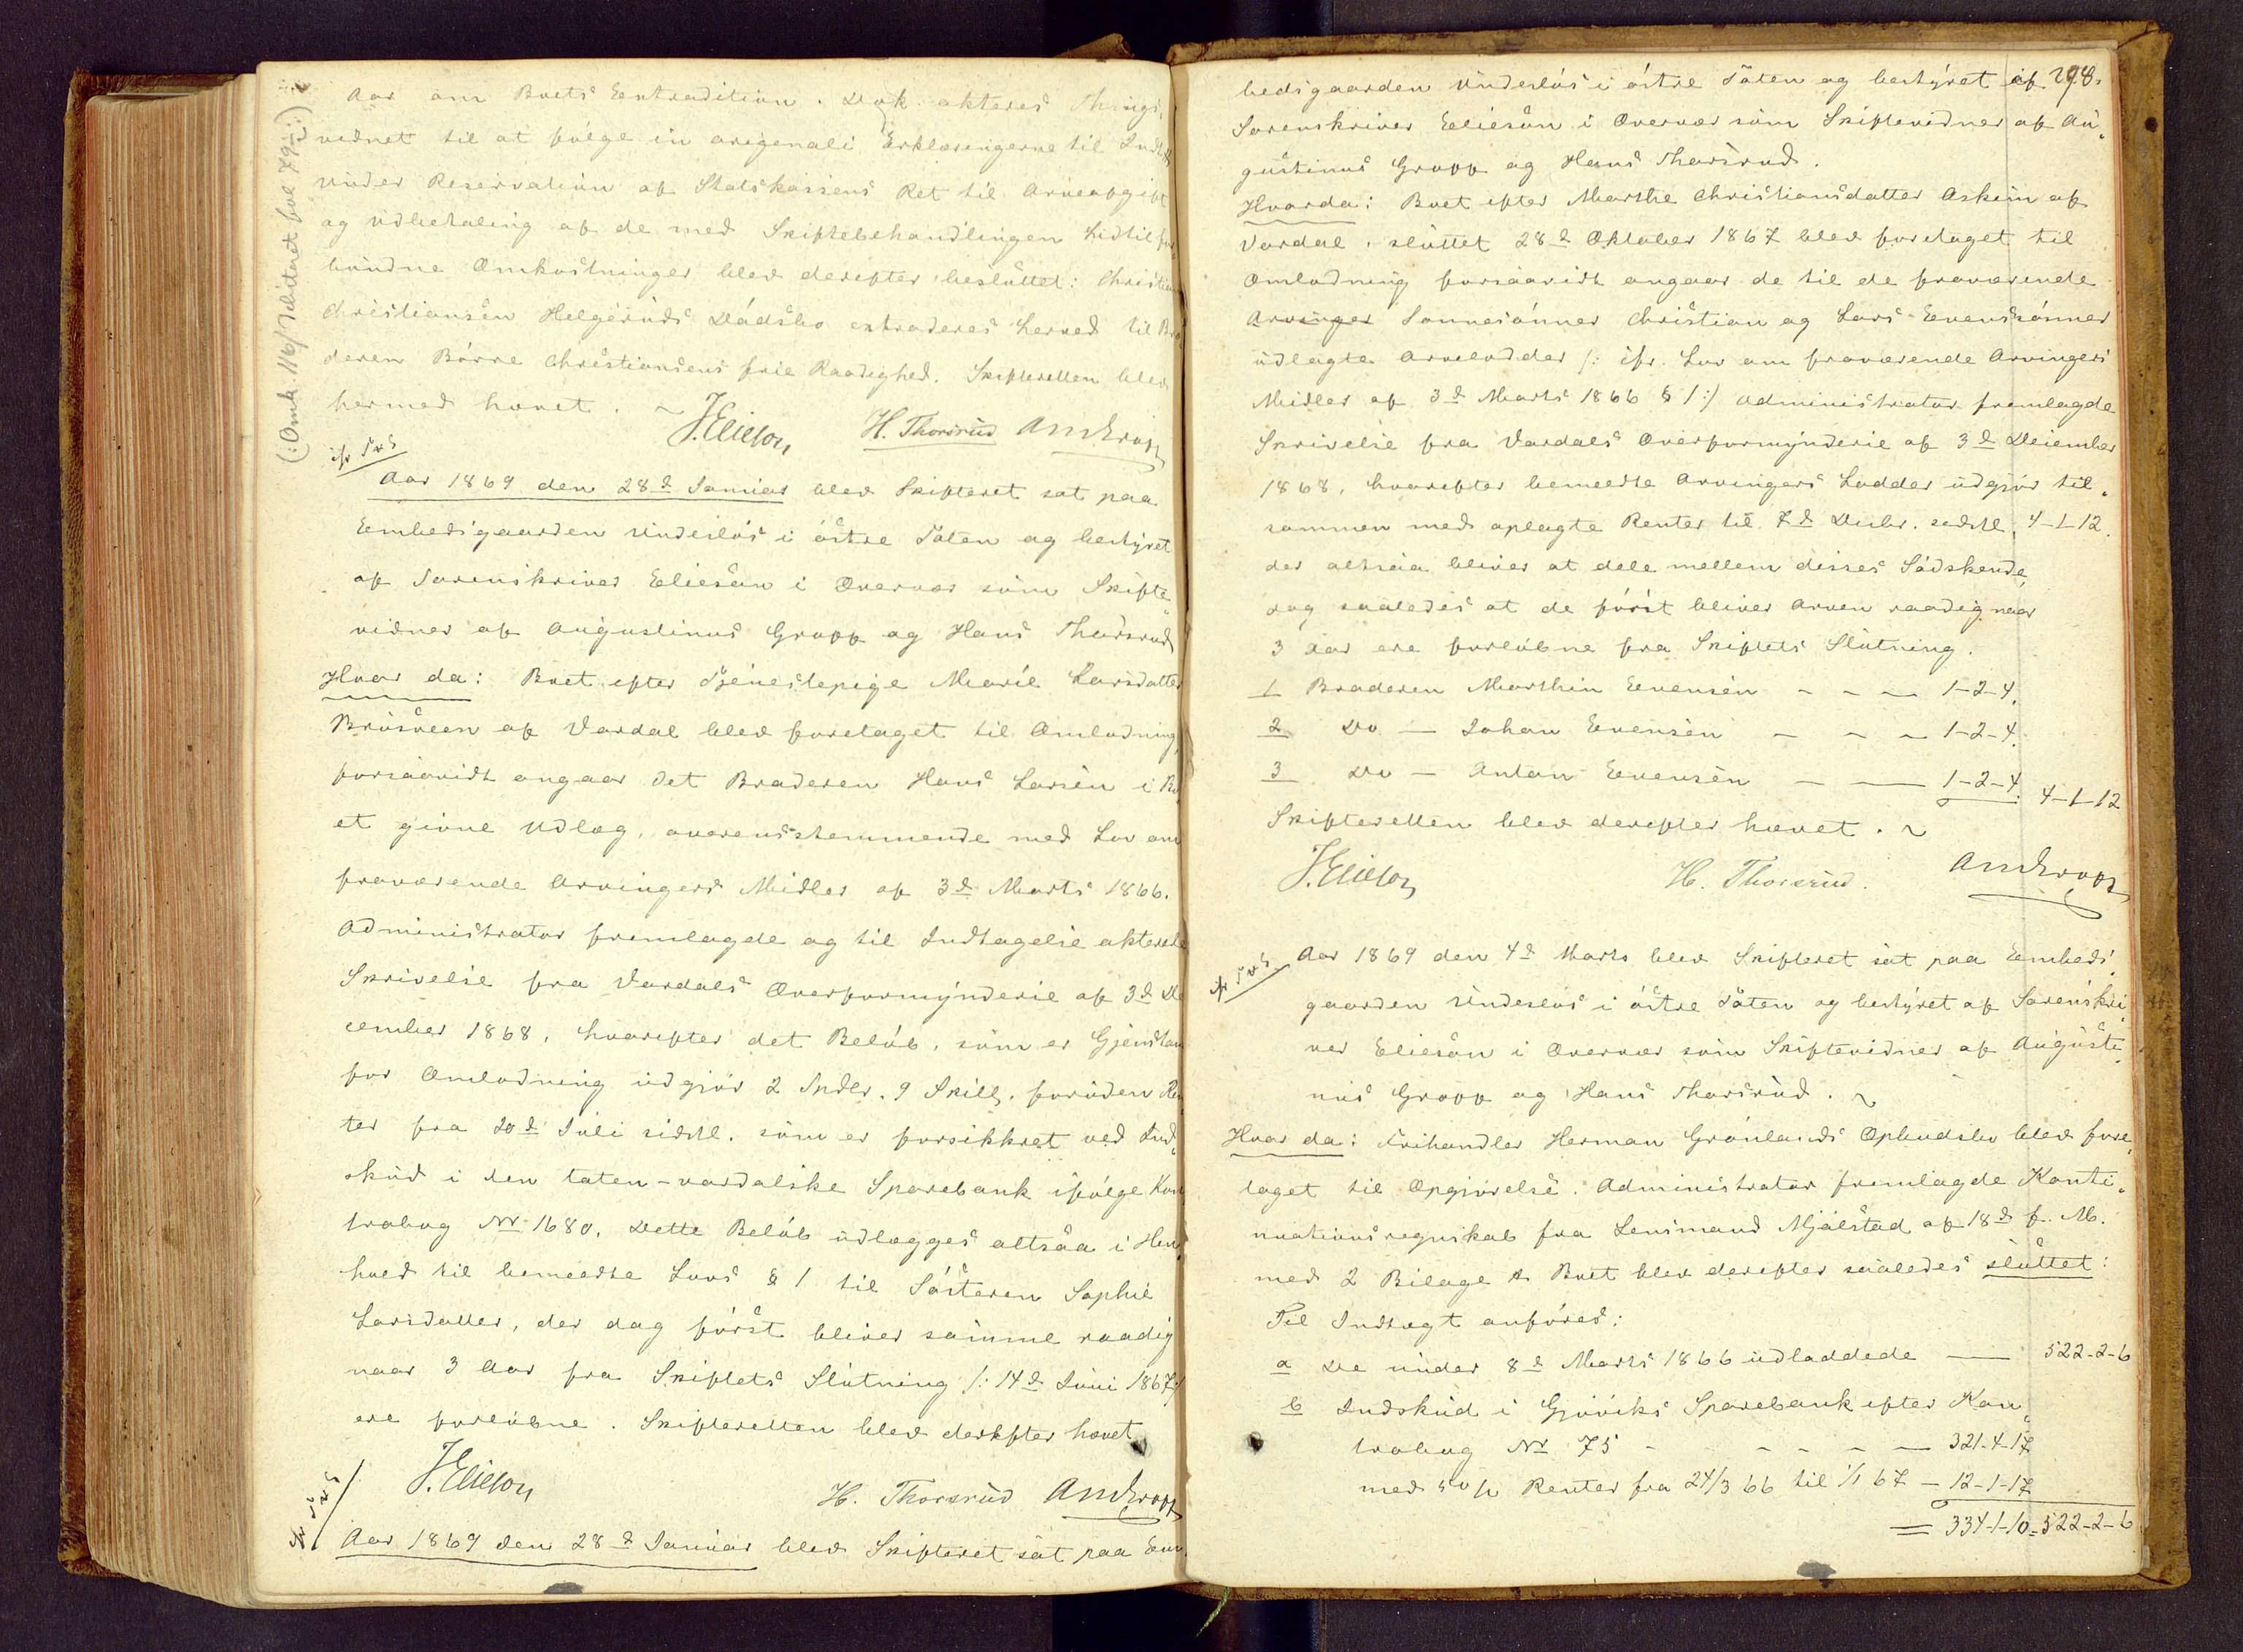 Aar om Boets Extradition. Dok. akteres Things„
vidnet til at følge in originali Erklæringerne til Indt
under Reservation af Statskassens Ret til Arveafgift
og Udbetaling af de med Skiftebehandlingen hidtil for
bundne Omkostninger blev derefter besluttet: Christian
Christiansen Helgeruds Dødsbo extraderes herved til Bro
deren Børre Christiansens frie Raadighed. Skifteretten blev
hermed hævet. ~
J. Elieson H. Thorsrud AmGropp
Aar 1869 den 28d Januar blev Skifteret sat paa
Eembedsgaarden Underlös i östre Toten og bestyret
af Sorenskriver Elieson i Overvær som Skifte„
vidner af Augustinus Gropp og Hans Thorsrud
Hvor da: Boet efter Tjenestepige Marie Larsdatter
Brusveen af Vardal blev foretaget til Omlodning,
forsaavidt angaar det Broderen Hans Larsen i Bo
et givne Udlæg, overensstemmende med Lov om
fraværende Arvingers Midler af 3d Marts 1866.
Administrator fremlagde og til Indtagelse akterede
Skrivelse fra Vardals Overformynderie af 3d De
cember 1868, hvorefter det Beløb, som er Gjenstan
for Omlodning udgjør 2 Spdlr. 9 Skill. foruden Ren
ter fra 20d Juli sidstl. som er forsikkret ved Ind„
skud i den toten-vardalske Sparebank ifølge Kon
trabog No 1680. Dette Beløb udlægges altsaa i Hen„
hold til bemeldte Lovs § 1 til Søsteren Sophie
Larsdatter, der dog først bliver samme raadig
naar 3 Aar fra Skiftets Slutning /: 14d Juni 1867:/
ere forløbne. Skifteretten blev derefter hævet
J. Elieson H. Thorsrud AmGropp
Aar 1869 den 28d Januar blev Skifteret sat paa Em„
(: Omk. 116/ Debiteret fol 79 :)
298.
bedsgaarden Underlös i östre Toten og bestyret af
Sorenskriver Elieson i Overvær som Skiftevidner af Au„
gustinus Gropp og Hans Thorsrud.
Hvorda: Boet efter Marthe Christiansdatter Askim af
Vardal, sluttet 28d Oktober 1867 blev foretaget til
Omlodning forsaavidt angaar de til de fraværende
Arvinger Sønnesønner Christian og Lars Evenssønner
udlagte Arvelodder /: ifr. Lov om fraværende Arvingers
Midler af 3d Marts 1866 § 1:/ Administrator fremlagde
Skrivelse fra Vardals Overformynderie af 3d December
1868, hvorefter bemeldte Arvingers Lodder udgjør til„
sammen med oplagte Renter til 7d Decbr. sidstl. 4-1-12.
der altsaa bliver at dele mellem disses Sødskende,
dog saaledes at de først bliver Arven raadig naar
3 Aar ere forløbne fra Skiftets Slutning.
1 Broderen Marthin Evensen - - - 1-2-4.
2 Do — Johan Evensen - - - 1-2-4.
3 Do — Anton Evensen - - 1-2-4. 4-1-12
Skifteretten blev derefter hævet. ~
J. Elieson H. Thorsrud. AmGropp
Aar 1869 den 4d Marts blev Skifteret sat paa Eembeds„
gaarden Underlös i östre Toten og bestyret af Sorenskri„
ver Elieson i Overvær som Skiftevidner af Augusti„
nus Gropp og Hans Thorsrud. ~
Hvor da: Frihandler Herman Grønlands Opbudsbo blev fore„
taget til Opgjørelse. Administrator fremlagde Konti„
nuationsregnskab fra Lensmand Mjølstad af 18d f. M.
med 2 Bilage & Boet blev derefter saaledes sluttet:
Til Indtægt anføres:
a De under 8d Marts 1866 udloddede — 522-2-6
b Indskud i Gjøviks Sparebank efter Kon„
trabog No 75 - - - - - 321-4-17
med 5 o/o Renter fra 24/3 66 til 1/1 67 — 12-1-17
= 334-1-10 = 522-2-6